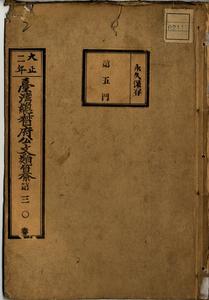 大正
二年
臺灣總督府公文類纂
第三〇
永久保存
第五門